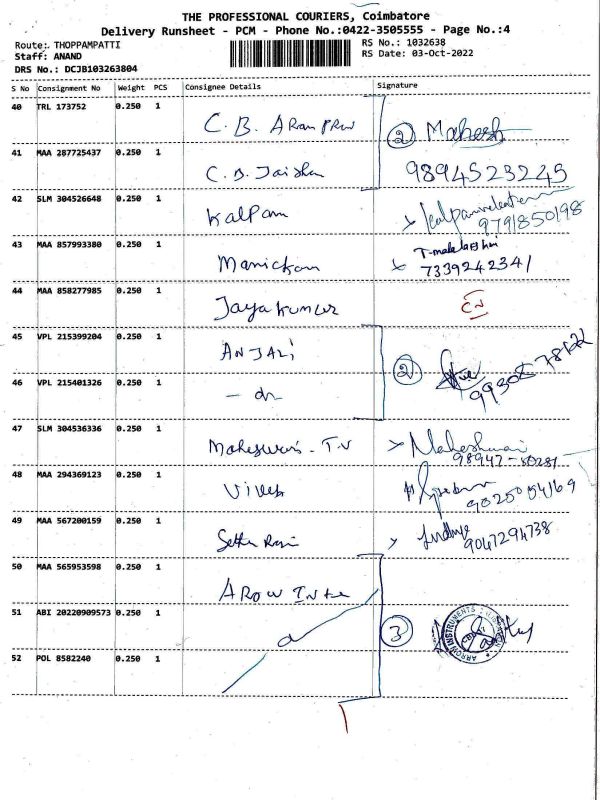 THE PROFESSIONAL COURIERS, Coimbatore
Delivery Runsheet - PCM - Phone No.:0422-3505555 - Page No.:4
Route: THOPPAMPATTI
Staff: ANAND
DRS No.: DCJB103263804
RS No.: 1032638
RS Date: 03-Oct-2022
S No Consignment No Weight PCS Consignee Details Signature
40 TRL 173752 0.250 1 C. B. 2 Mahesh
41 MAA 287725437 0.250 1 C. B. 9894523245
42 SLM 304526648 0.250 1 Kalpam 9791850198
43 MAA 857993380 0.250 1 Manickam 7339242341
44 MAA 858277985 0.250 1 Jayakumar
45 VPL 215399204 0.250 1 ANJALi 2
46 VPL 215401326 0.250 1 - do
47 SLM 304536336 0.250 1 Maheswari. T.V Maheshwari
98947-50281
48 MAA 294369123 0.250 1 Vivek 9025054169
49 MAA 567200159 0.250 1 9047294738
50 MAA 565953598 0.250 1 AROW
51 ABI 20220909573 0.250 1 3 ARROW INSTRUMENTS
52 POL 8582240 0.250 1